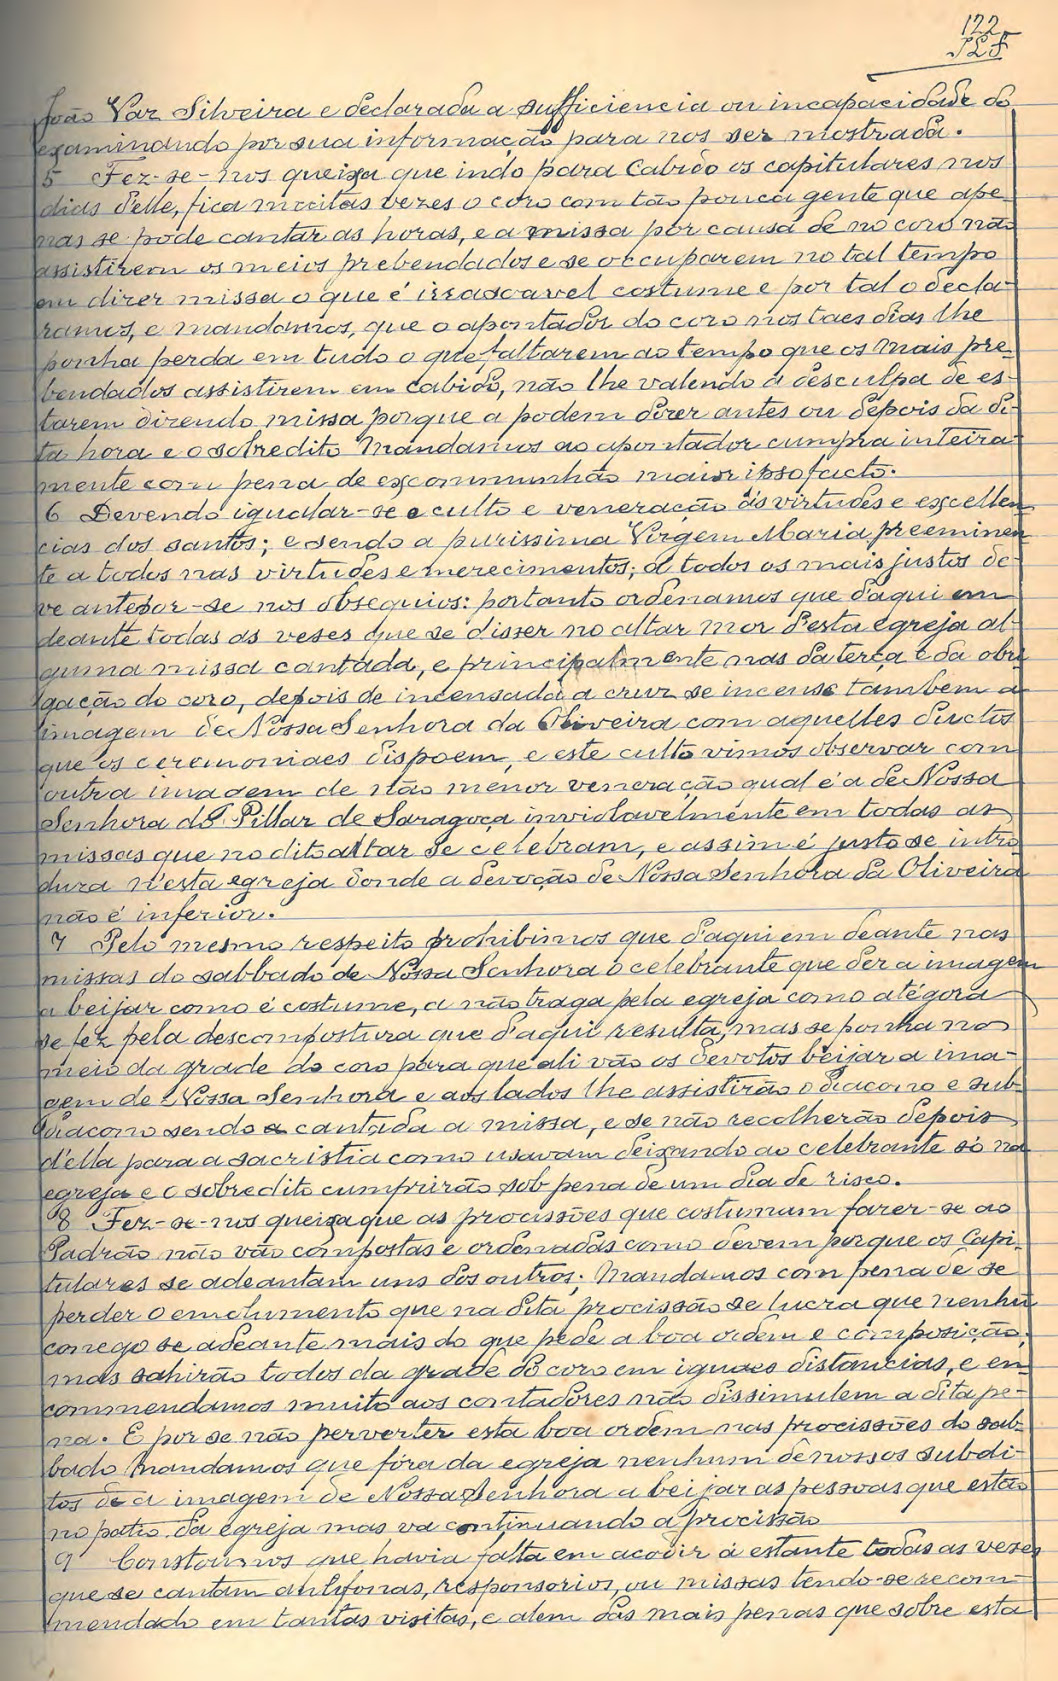 122
João Vaz Silveira e declarada a sufficiencia ou incapacidade do
examinando por sua informação para nos ser mostrada.
5 Fez-se-nos queixa que indo para Cabido os capitulares nos
dias d'elle, fica muitas vezes o coro com tão pouca gente que ape-
nas se pode cantar as horas, e a missa por causa de no coro não
assistirem os meios prebendados e se occuparem no tal tempo
em dizer missa o que é irrasoavel costume e por tal o decla-
ramos, e mandamos, que o apontador do coro nos taes dias lhe
ponha perda em tudo o que faltarem ao tempo que os mais pre-
bendados assistirem em cabido, não lhe valendo a desculpa de es-
tarem dizendo missa porque a podem dizer antes ou depois da di-
ta hora e o sobredito Mandamos ao apontador cumpra inteira-
mente com pena de excommunhão maior ipso facto.
6 Devendo igualar-se o culto e veneração ás virtudes e excellen-
cias dos santos; e sendo a purissima Virgem Maria preeminen-
te a todos nas virtudes e merecimentos; a todos os mais justos de-
ve antepor-se nos obsequios: portanto ordenamos que d'aqui em
deante todas as veses que se disser no altar mor d'esta egreja al-
guma missa cantada, e principalmente nas da terça e da obri-
gação do coro, depois de incensada a cruz se incense tambem a
imagem de Nossa Senhora da Oliveira com aquelles ductos
que os ceremoniaes dispoem, e este culto vimos observar com
outra imagem de não menor veneração qual é a de Nossa
Senhora do Pillar de Saragoça inviolavelmente em todas as
missas que no dito altar se celebram, e assim é justo se intro-
duza n'esta egreja donde a devoção de Nossa Senhora da Oliveira
não é inferior.
7 Pelo mesmo respeito prohibimos que d'aqui em deante nas
missas do sabbado de Nossa Senhora o celebrante que der a imagem
a beijar como é costume, a não traga pela egreja como atégora
se fez pela descompostura que d'aqui resulta, mas se ponha no
meio da grade do coro para que ali vão os devotos beijar a ima-
gem de Nossa Senhora e aos lados lhe assistirão o diacono e sub-
diacono sendo cantada a missa, e se não recolherão depois
d'ella para a sacristia como usavam deixando ao celebrante só na
egreja e o sobredito cumprirão sob pena de um dia de risco.
8 Fez-se-nos queixa que as procissões que costumam fazer-se ao
Padrão não vão compostas e ordenadas como devem porque os Capi-
tulares se adeantam uns dos outros; Mandamos com pena de se
perder o emolumento que na dita procissão se lucra que nenhũ
conego se adeante mais do que pede a boa ordem e composição,
mas sahirão todos da grade do coro em iguaes distancias, e en-
commendamos muito aos contadores não dissimulem a dita pe-
na. E por se não perverter esta boa ordem nas procissões do sab-
bado Mandamos que fóra da egreja nenhum de nossos subdi-
tos dê a imagem de Nossa Senhora a beijar as pessoas que estão
no patio da egreja mas va continuando a procissão
9 Constou-nos que havia falta em acodir á estante todas as vezes
que se cantam antifonas, responsorios, ou missas tendo-se recom-
mendado em tantas visitas, e alem das mais penas que sobre esta